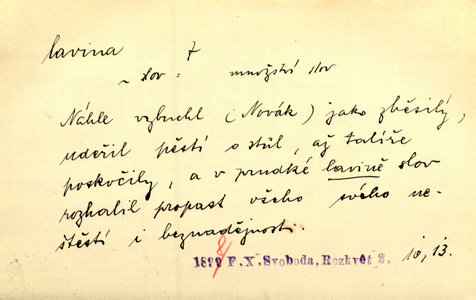 lavina 7
~ slov : množství slov
Náhle vzbuchl (Novák) jako zběsilý,
udeřil pěstí o stůl, až talíře
poskočily, a v prudké lavině slov
rozhalil propast všeho svého ne-
štěstí i beznadějnosti.
1898 F. X. Svoboda, Rozkvět 2. 10, 13.